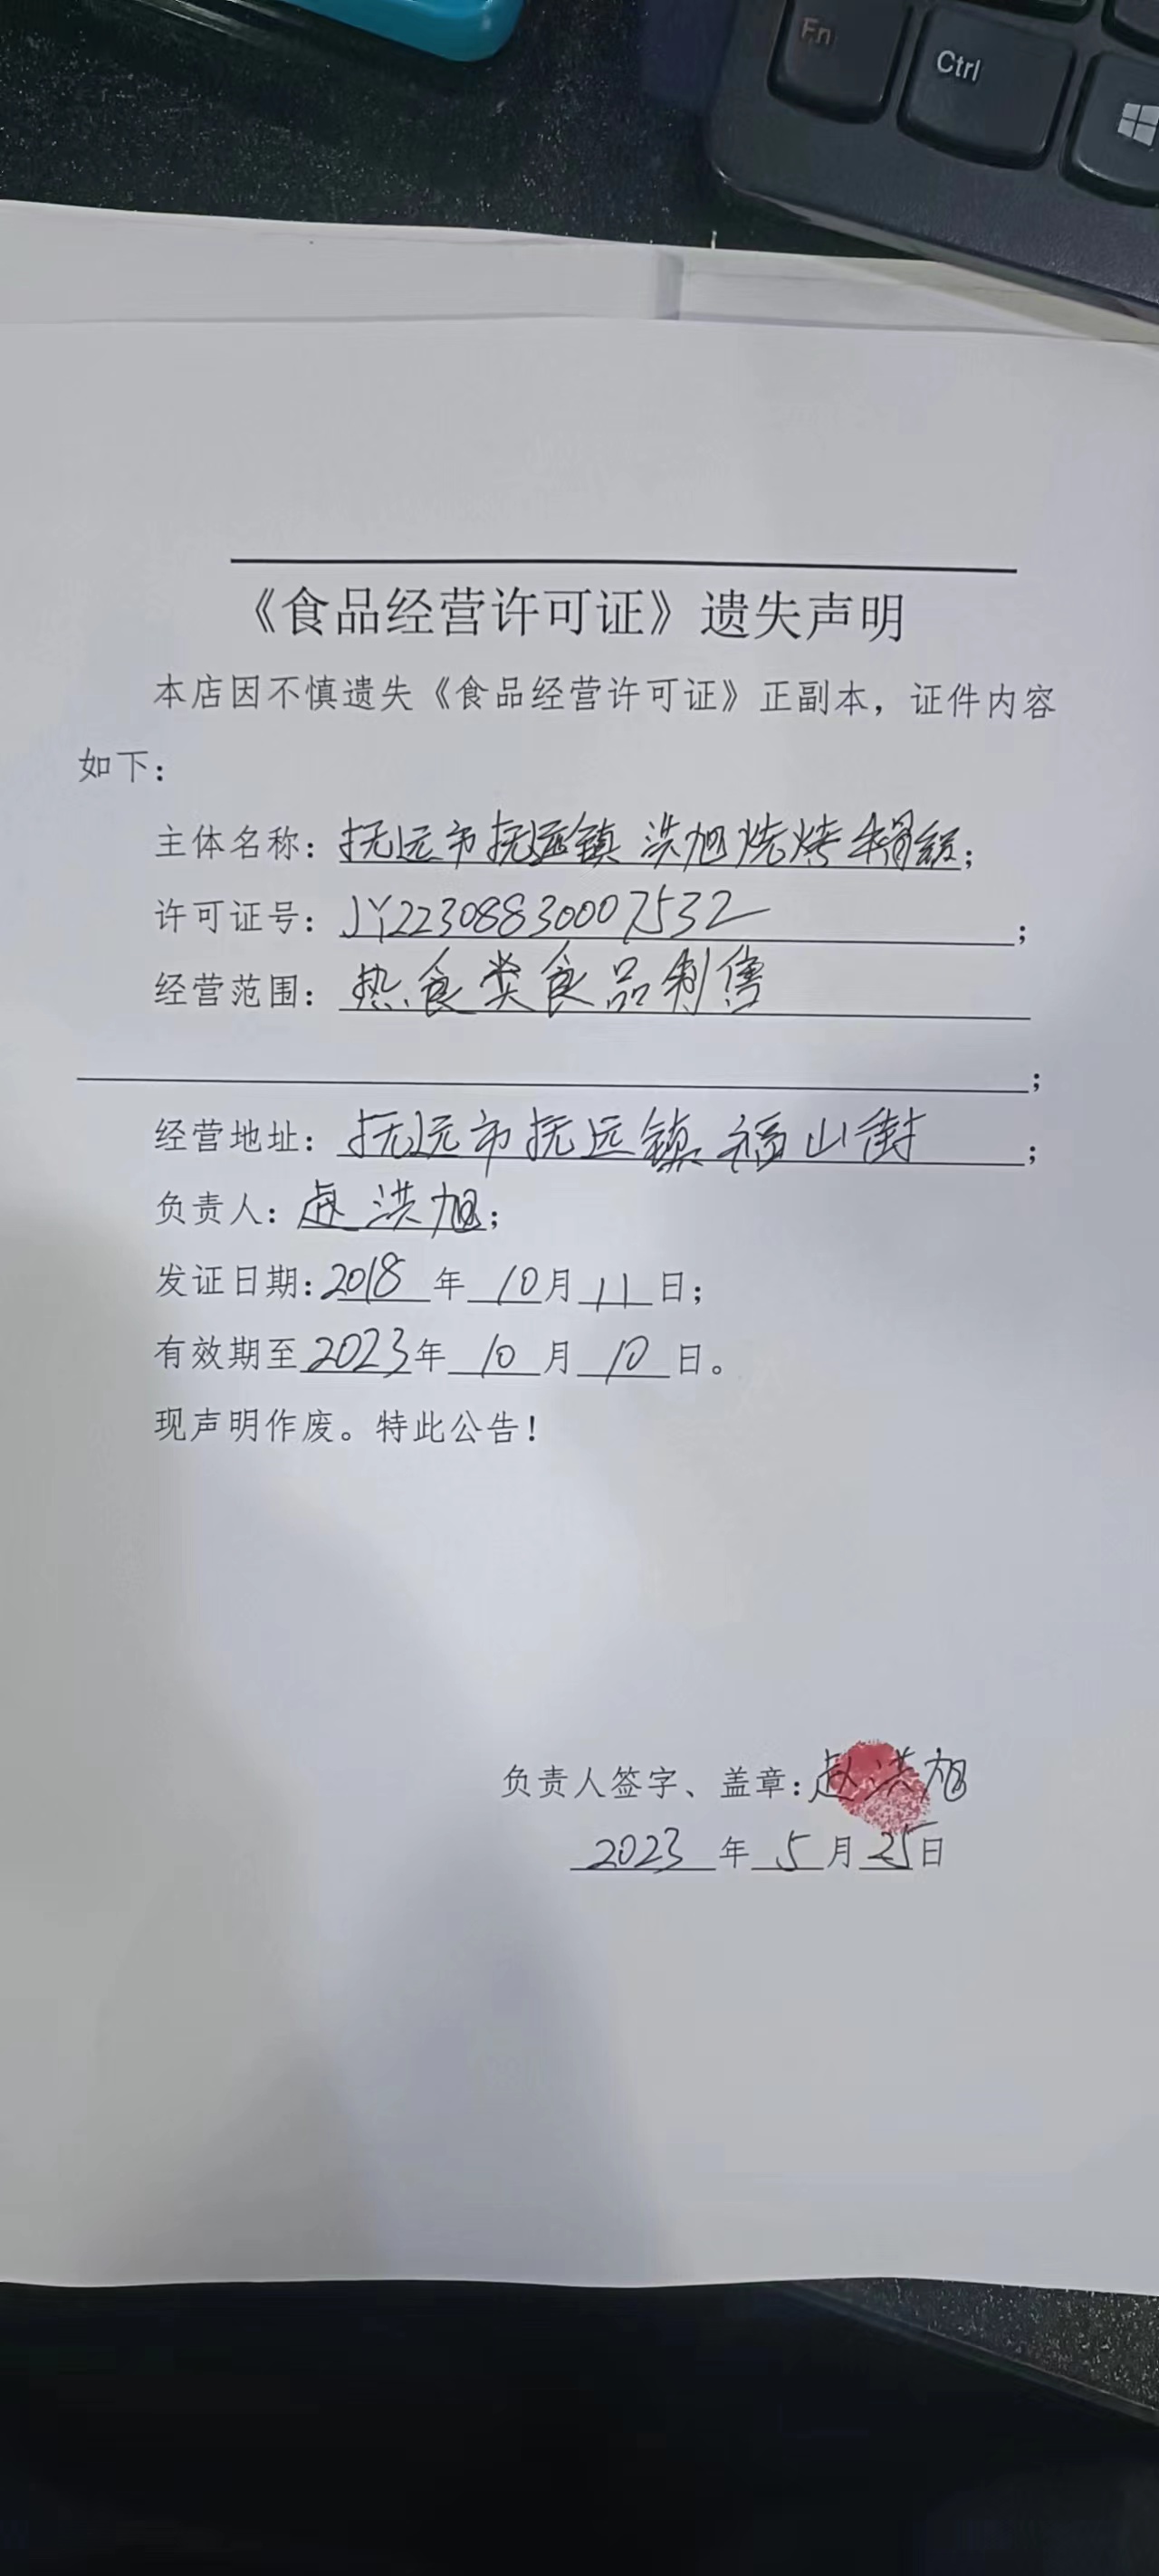 Fn
Ctrl
《食品经营许可证》遗失声明
本店因不慎遗失《食品经营许可证》正副本，证件内容
如下：
主体名称：抚远市抚远镇洪旭烧烤;
许可证号：JY22308830007532;
经营范围：热食类食品制售
;
经营地址：抚远市抚远镇福山街;
负责人：赵洪旭;
发证日期：2018年10月11日;
有效期至2023年10月10日。
现声明作废。特此公告！
负责人签字、盖章：赵洪旭
2023年5月25日